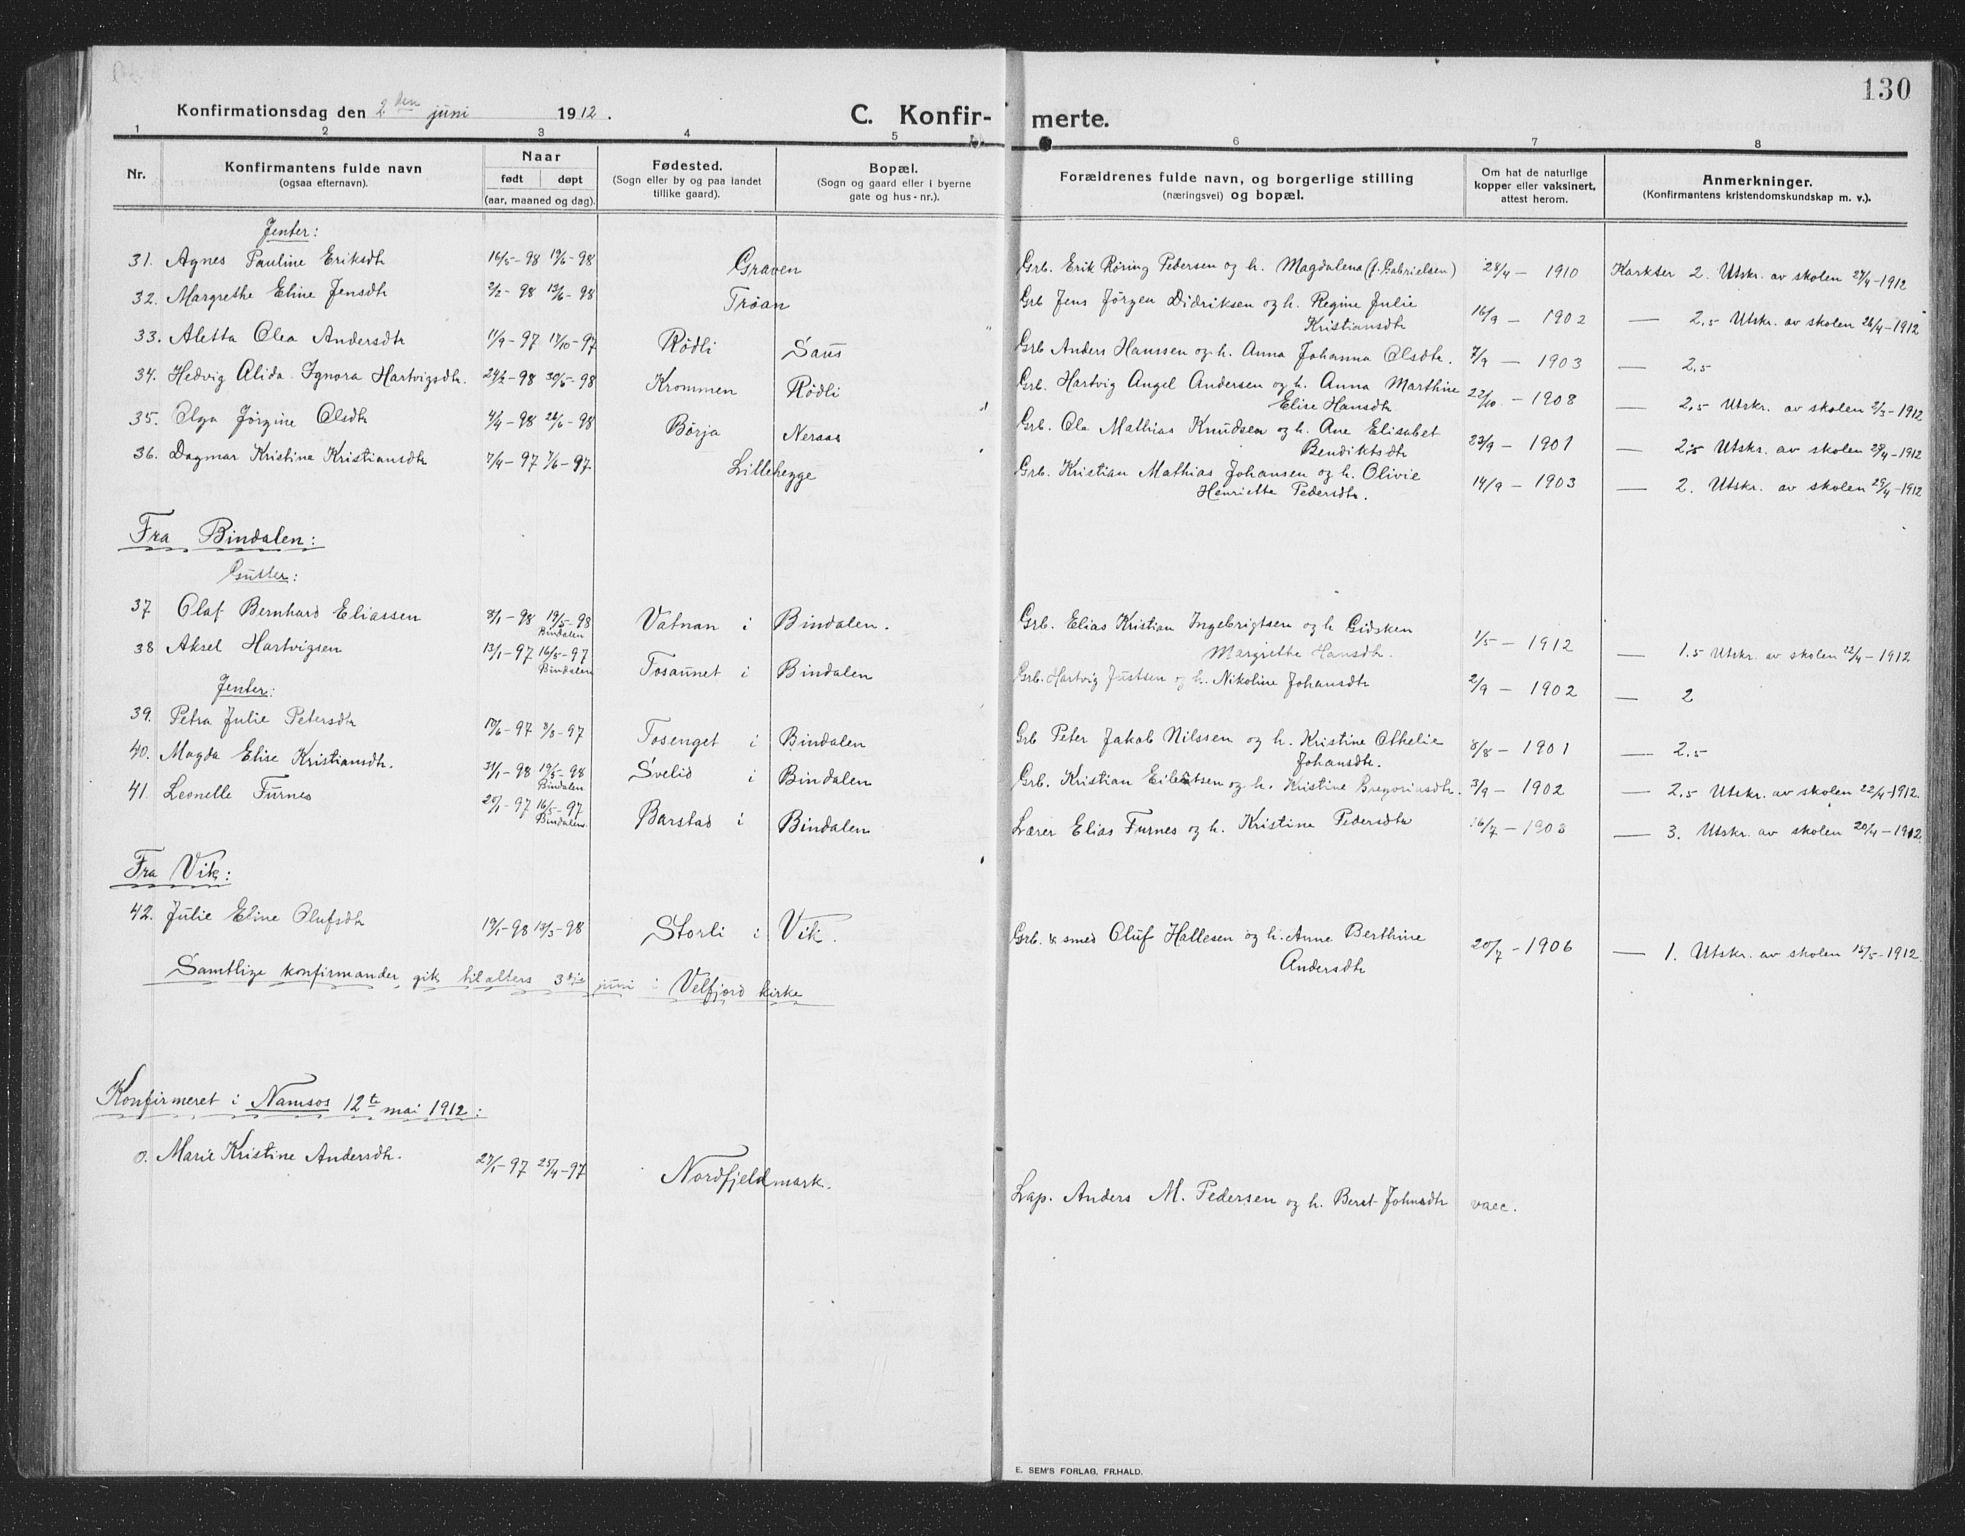 130
Konfirmationsdag den 2den juni 1912. C. Konfir- merte.
1 2 3 4 5 6 7 8
Nr. Konfirmantens fulde navn (ogsaa efternavn). Naar født døpt (aar, maaned og dag). Fødested. (Sogn eller by og paa landet tillike gaard). Bopæl. (Sogn og gaard eller i byerne gate og hus-nr.). Forældrenes fulde navn, og borgerlige stilling (næringsvei) og bopæl. Om hat de naturlige kopper eller vaksinert, attest herom. Anmerkninger. (Konfirmantens kristendomskundskap m. v.).
Jenter:
31. Agnes Pauline Eriksdtr 16/5-98 19/6-98 Graven Grb. Erik Røring Pedersen og h. Magdalena (f. Gabrielsen) 28/4 - 1910 Karkter 2. Utskr. av skolen 27/4-1912
32. Margrethe Eline Jensdtr 2/2-98 13/6-98 Trøan Grb Jens Jørgen Didriksen og h. Regine Julie Kristiansdtr 16/9 - 1902 — 2.5 Utskr. av skolen 26/4-1912
33. Aletta Olea Andersdtr 11/9-97 17/10-97 Rødli Saus Grb Anders Hanssen og h. Anna Johanna Olsdtr. 7/9 - 1903 — 2.5
34. Hedvig Alida Ignora Hartvigsdtr. 24/2-98 30/5-98 Krommen Rødli Grb. Hartvig Angel Andersen og h. Anna Marthine Elise Hansdtr 22/10 - 1908 — 2.5 Utskr. av skolen 2/5-1912
35. Olga Jørgine Olsdtr 4/4-98 26/6-98 Børja Neraas Grb. Ola Mathias Knudsen og h. Ane Elisabet Bendiktsdtr 23/9 - 1901 — 2.5 Utskr. av skolen 28/4-1912
36. Dagmar Kristine Kristiansdtr 7/4-97 7/6-97. Lillehegge Grb. Kristian Mathias Johansen og h. Olivie Henriette Pedersdtr. 14/9 - 1903 — 2. Utskr. av skolen 29/4-1912
Fra Bindalen:
Gutter:
37 Olaf Bernhard Eliassen 8/1-98 19/5-98 Bindalen Vatnan i Bindalen. Grb. Elias Kristian Ingebrigtsen og h Gidsken Margrethe Hansdtr. 1/5 - 1912 — 1.5 Utskr. av skolen 22/4-1912
38 Aksel Hartvigsen 13/1-97 16/5-97 Bindalen Tosaunet i Bindalen Grb. Hartvig Justsen og h. Nikoline Johansdtr 2/9 - 1902 — 2
Jenter:
39. Petra Julie Petersdtr 10/6-97 8/8-97 Tosenget i Bindalen Grb Peter Jakob Nilssen og h. Kristine Othelie Johansdtr. 8/8 - 1901 — 2.5
40. Magda Elise Kristiansdtr. 31/1-98 19/5-98 Bindalen Svelid i Bindalen Grb. Kristian Eilertsen og h. Kristine Gregoriusdtr. 3/9 - 1902 — 2.5 Utskr. av skolen 22/4-1912.
41. Leonelle Furnes 20/1-97 16/5-97 Bindalen. Barstad i Bindalen Lærer Elias Furnes og h. Kristine Pedersdtr 16/7 - 1903 — 3. Utskr. av skolen 20/4-1912
Fra Vik:
42. Julie Eline Olufsdtr 19/1-98 13/3-98 Storli i Vik. Grb. & smed Oluf Hallesen og h. Anne Berthine Andersdtr 20/7 - 1906 — 1. Utskr. av skolen 15/5-1912.
Samtlige konfirmander gik til alters 3die juni i Velfjord kirke
Konfirmeret i Namsos 12te mai 1912:
0. Marie Kristine Andersdtr. 27/1-97 25/4-97 Nordfjeldmark. Lap. Anders M. Pedersen og h. Beret Johnsdtr vacc.
E. SEM'S FORLAG, FR.HALD.